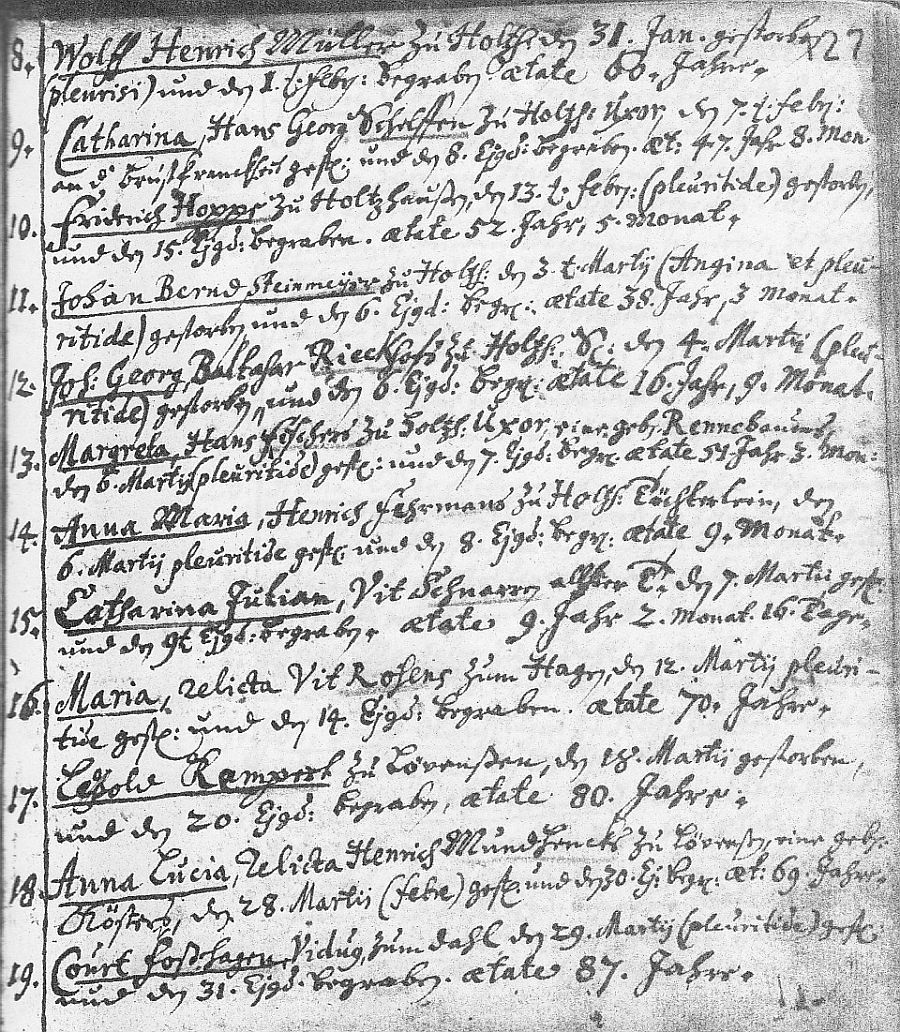 127
8. Wolff Henrich Müller zu Holtzh. den 31. Jan. gestorben
(pleurisi) und den 1. t. Febr: begraben ætate 60. Jahre.
9. Catharina, Hans Georg Scheffen zu Holtzh: Uxor, den 7. t. febr:
an d. Brustkranckheit gest: und den 8. Ejgd: begraben. æt: 47. Jahr 8. Mon
10. Friderich Hoppe zu Holtzhaußen, den 13. t. febr: (pleuritide) gestorben,
und den 15. Ejgd: begraben. ætate 52. Jahr, 5. Monat.
11. Johan Bernd Steinmeyer zu Holtzh: den 3. t. Martij (Angina et pleu-
ritide) gestorben und den 6. Ejgd: begr: ætate 38. Jahr, 3 Monat.
12. Joh: Georg, Balthasar Rieckhofs zu Holtzh: S: den 4. Martij (pleu-
ritide) gestorben, und den 6. Ejgd: begr: ætate 16. Jahr, 9. Monat.
13. Margreta, Hans Fischers zu Holtzh: Uxor, eine geb. Rennebaums,
den 6. Martij (pleuritide) gest: und den 7. Ejgd: begr. ætate 51 Jahr 3. Mon:
14. Anna Maria, Henrich Fehrmans zu Holtzh: Töchterlein, den
6. Martij pleuritide gest. und den 8. Ejgd: begr: ætate 9. Monat.
15. Catharina Julian, Vit Schnarren T. den 7. Martij gest.
und den 9t Ejgd: begraben. ætate 9. Jahr 2. Monat. 16. Tage.
16. Maria, relicta Vit Rosens zum Hagen, den 12. Martij pleuri-
tide gest: und den 14. Ejgd: begraben. ætate 70. Jahre.
17. Lepold Rempert zu Lövenßen, den 18. Martij gestorben,
und den 20. Ejgd: begraben, ætate 80. Jahre.
18. Anna Lucia, relicta Henrich Mundhencks zu Lövenßen, eine geb:
Kösters, den 28. Martij (febre) gest. und den 30. Ej: begr: æt: 69. Jahre.
19. Court Foßhagen, Viduus, zum dahl den 29. Martij (pleuritide) gest.
und den 31. Ejgd. begraben. ætate 87. Jahre.